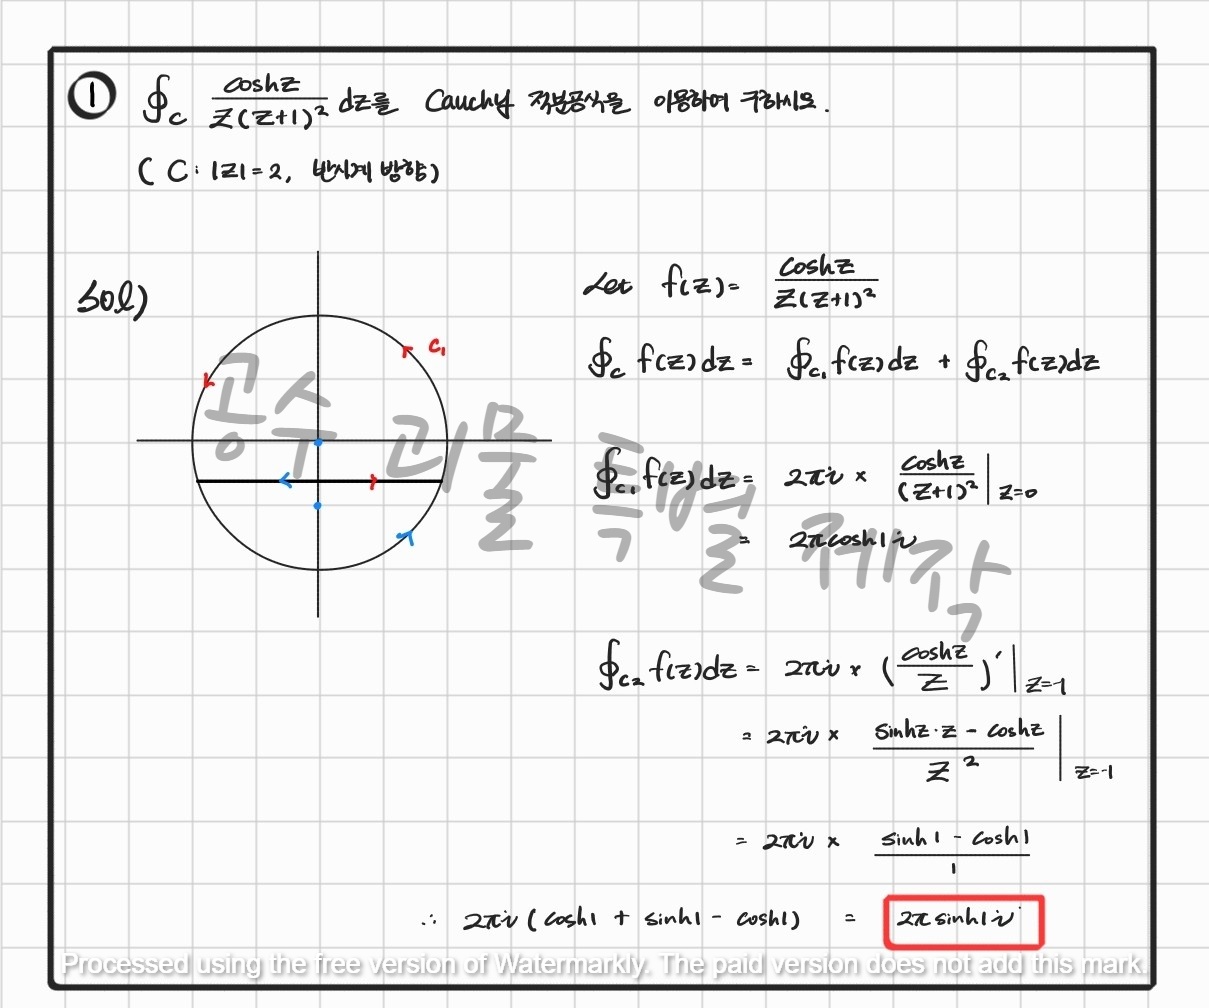 ① ∮_C coshz / z(z+1)² dz를 Cauchy 적분공식을 이용하여 구하시오.
( C : |z| = 2, 반시계 방향)
sol)
C₁
Let f(z) = coshz / z(z+1)²
∮_C f(z)dz = ∮_C₁ f(z)dz + ∮_C₂ f(z)dz
∮_C₁ f(z)dz = 2πi × coshz / (z+1)² |_z=0
= 2πcosh1i
∮_C₂ f(z)dz = 2πi × (coshz / z)' |_z=-1
= 2πi × sinhz·z - coshz / z² |_z=-1
= 2πi × sinh1 - cosh1 / 1
∴ 2πi (cosh1 + sinh1 - cosh1) = 2πsinh1i
공수 괴물 특별 제작
Processed using the free version of Watermarkly. The paid version does not add this mark.